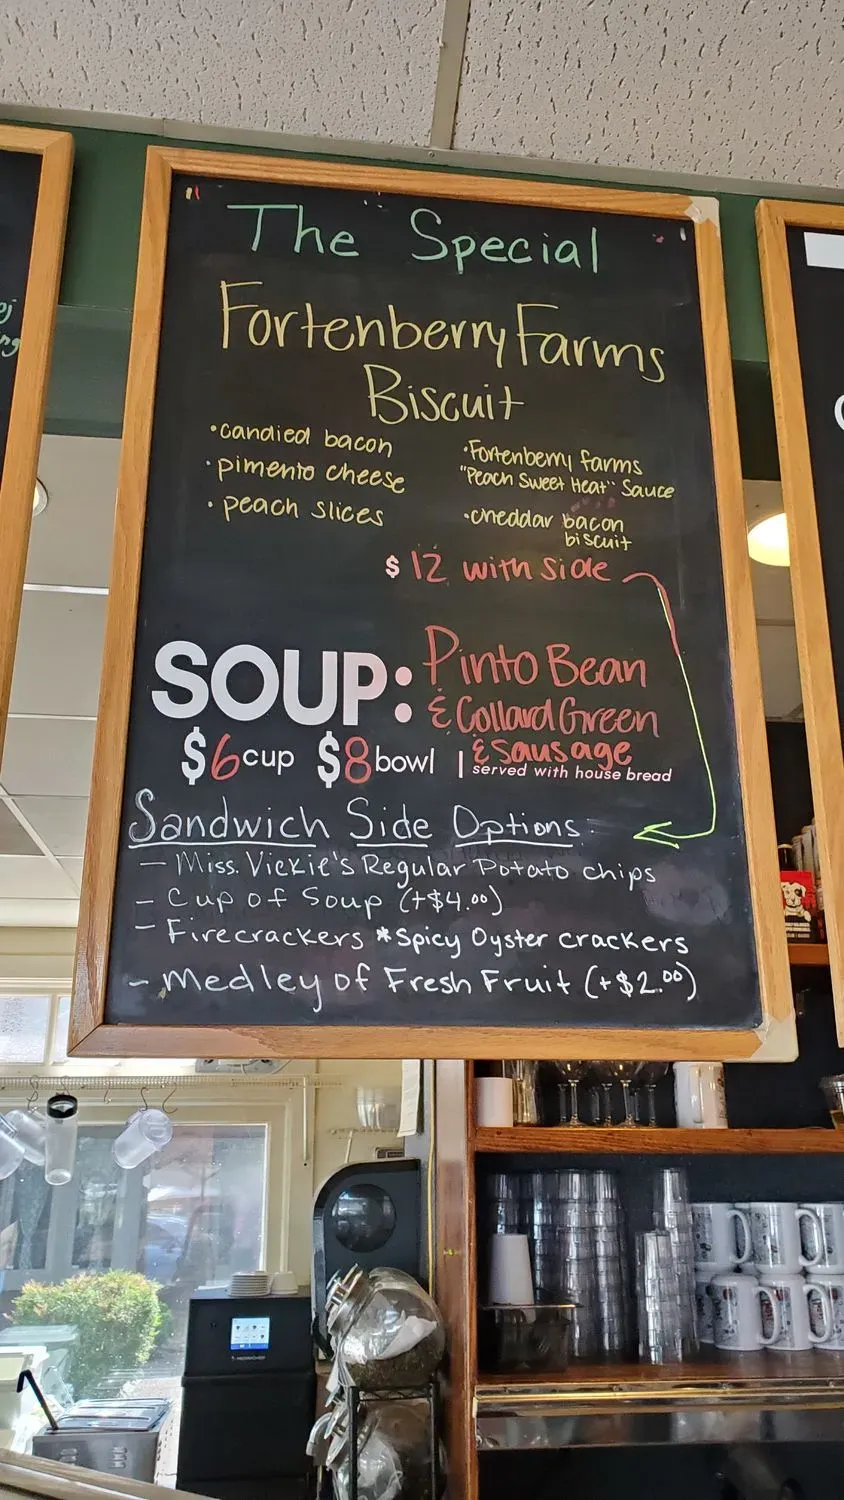 The Special
Fortenberry Farms
Biscuit
• candied bacon
• pimento cheese
• peach slices
• Fortenberry farms
"Peach Sweet Heat" Sauce
• cheddar bacon
biscuit
$12 with side
SOUP: Pinto Bean
& Collard Green
& Sausage
$6 cup $8 bowl | served with house bread
Sandwich Side Options:
- Miss. Vickie's Regular Potato chips
- Cup of Soup (+$4.00)
- Firecrackers *Spicy Oyster crackers
- Medley of Fresh Fruit (+$2.00)